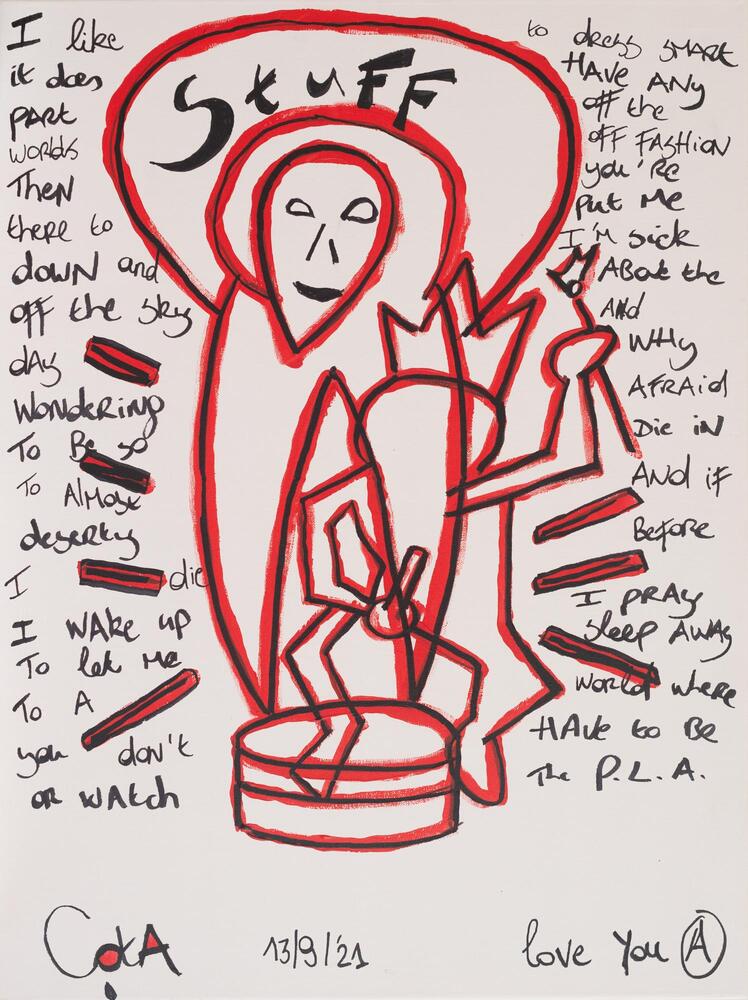 Stuff
I like
it does
PART
worlds
Then
there to
down and
off the sky
dAy
Wondering
To Be so
To Almost
deserty
I die
I WAke up
To let me
To A
you don't
or watch
to dress smart
HAve Any
off the
off FASHion
you're
Put Me
I'm sick
About the
And
WHy
AFRAid
Die in
And if
Before
I pRAy
sleep AWAy
world where
HAve to Be
The P.L.A.
CotA
13/9/'21
love you A